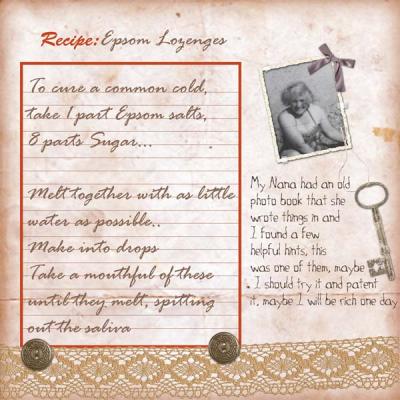 Recipe: Epsom Lozenges
To cure a common cold,
take 1 part Epsom salts,
8 parts Sugar...
Melt together with as little
water as possible..
Make into drops
Take a mouthful of these
until they melt, spitting
out the saliva
My Nana had an old
photo book that she
wrote things in and
I found a few
helpful hints, this
was one of them, maybe
I should try it and patent
it, maybe I will be rich one day